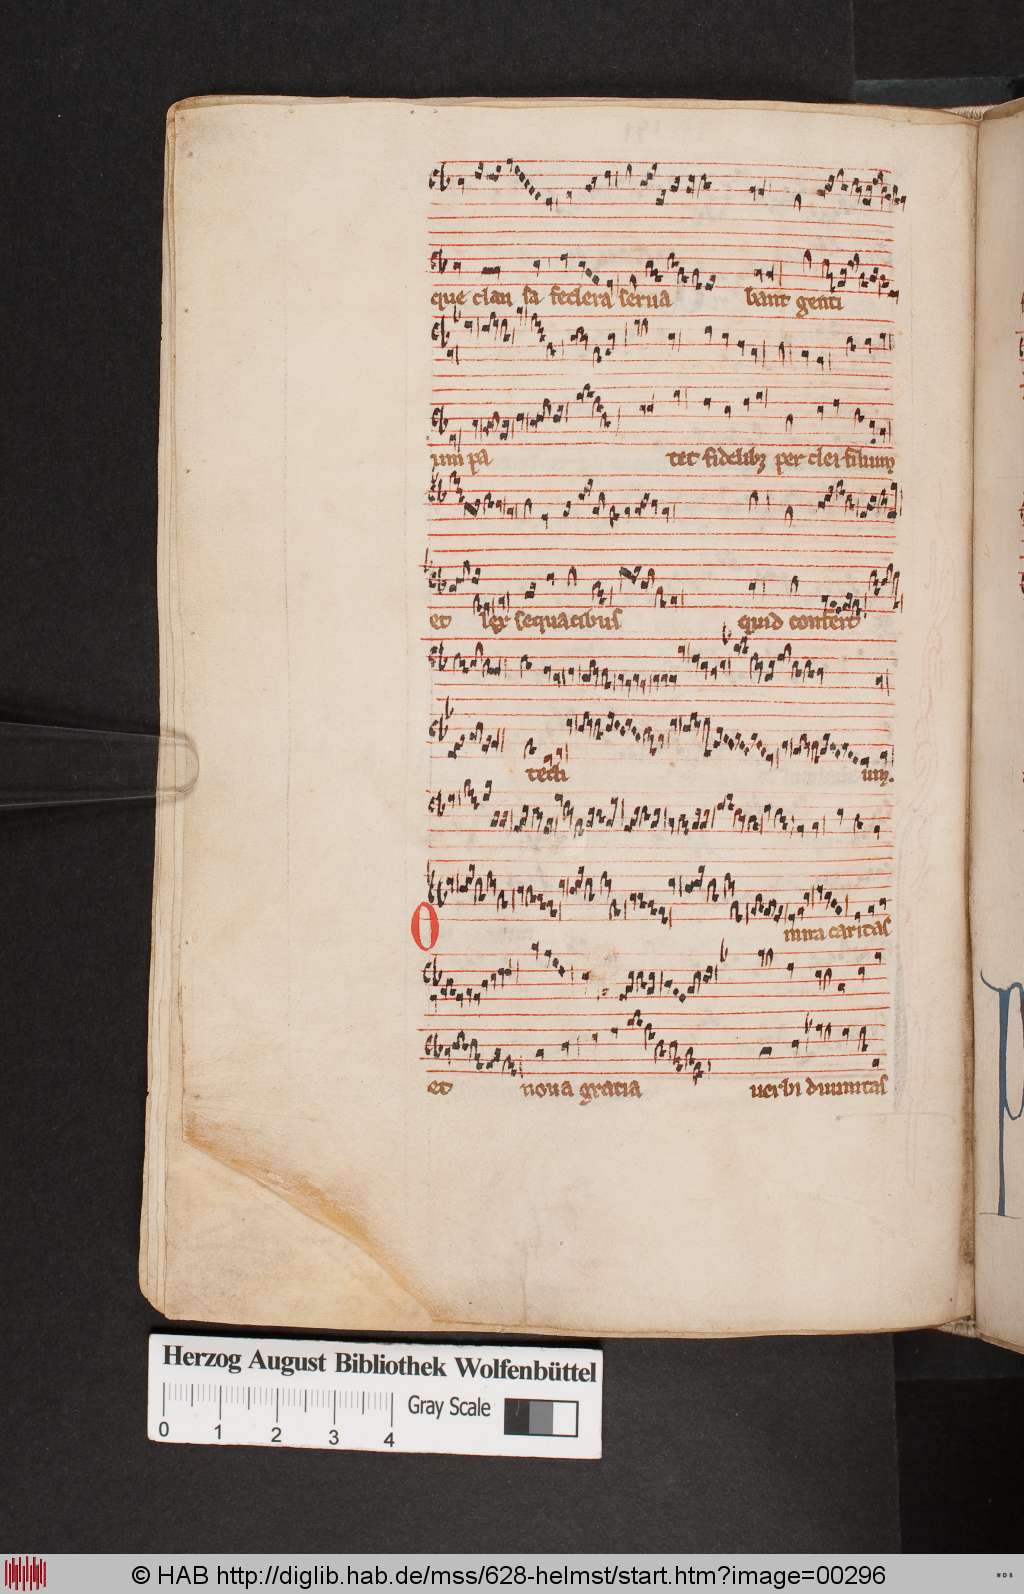 que clau sa scelera serua bant genti
um pa tet fidelibꝫ per clei filium
et lex sequacibus quid confert
tecti um.
O mira caritas
et noua gratia uerbi diuinitas
Herzog August Bibliothek Wolfenbüttel
Gray Scale
0 1 2 3 4
© HAB http://diglib.hab.de/mss/628-helmst/start.htm?image=00296